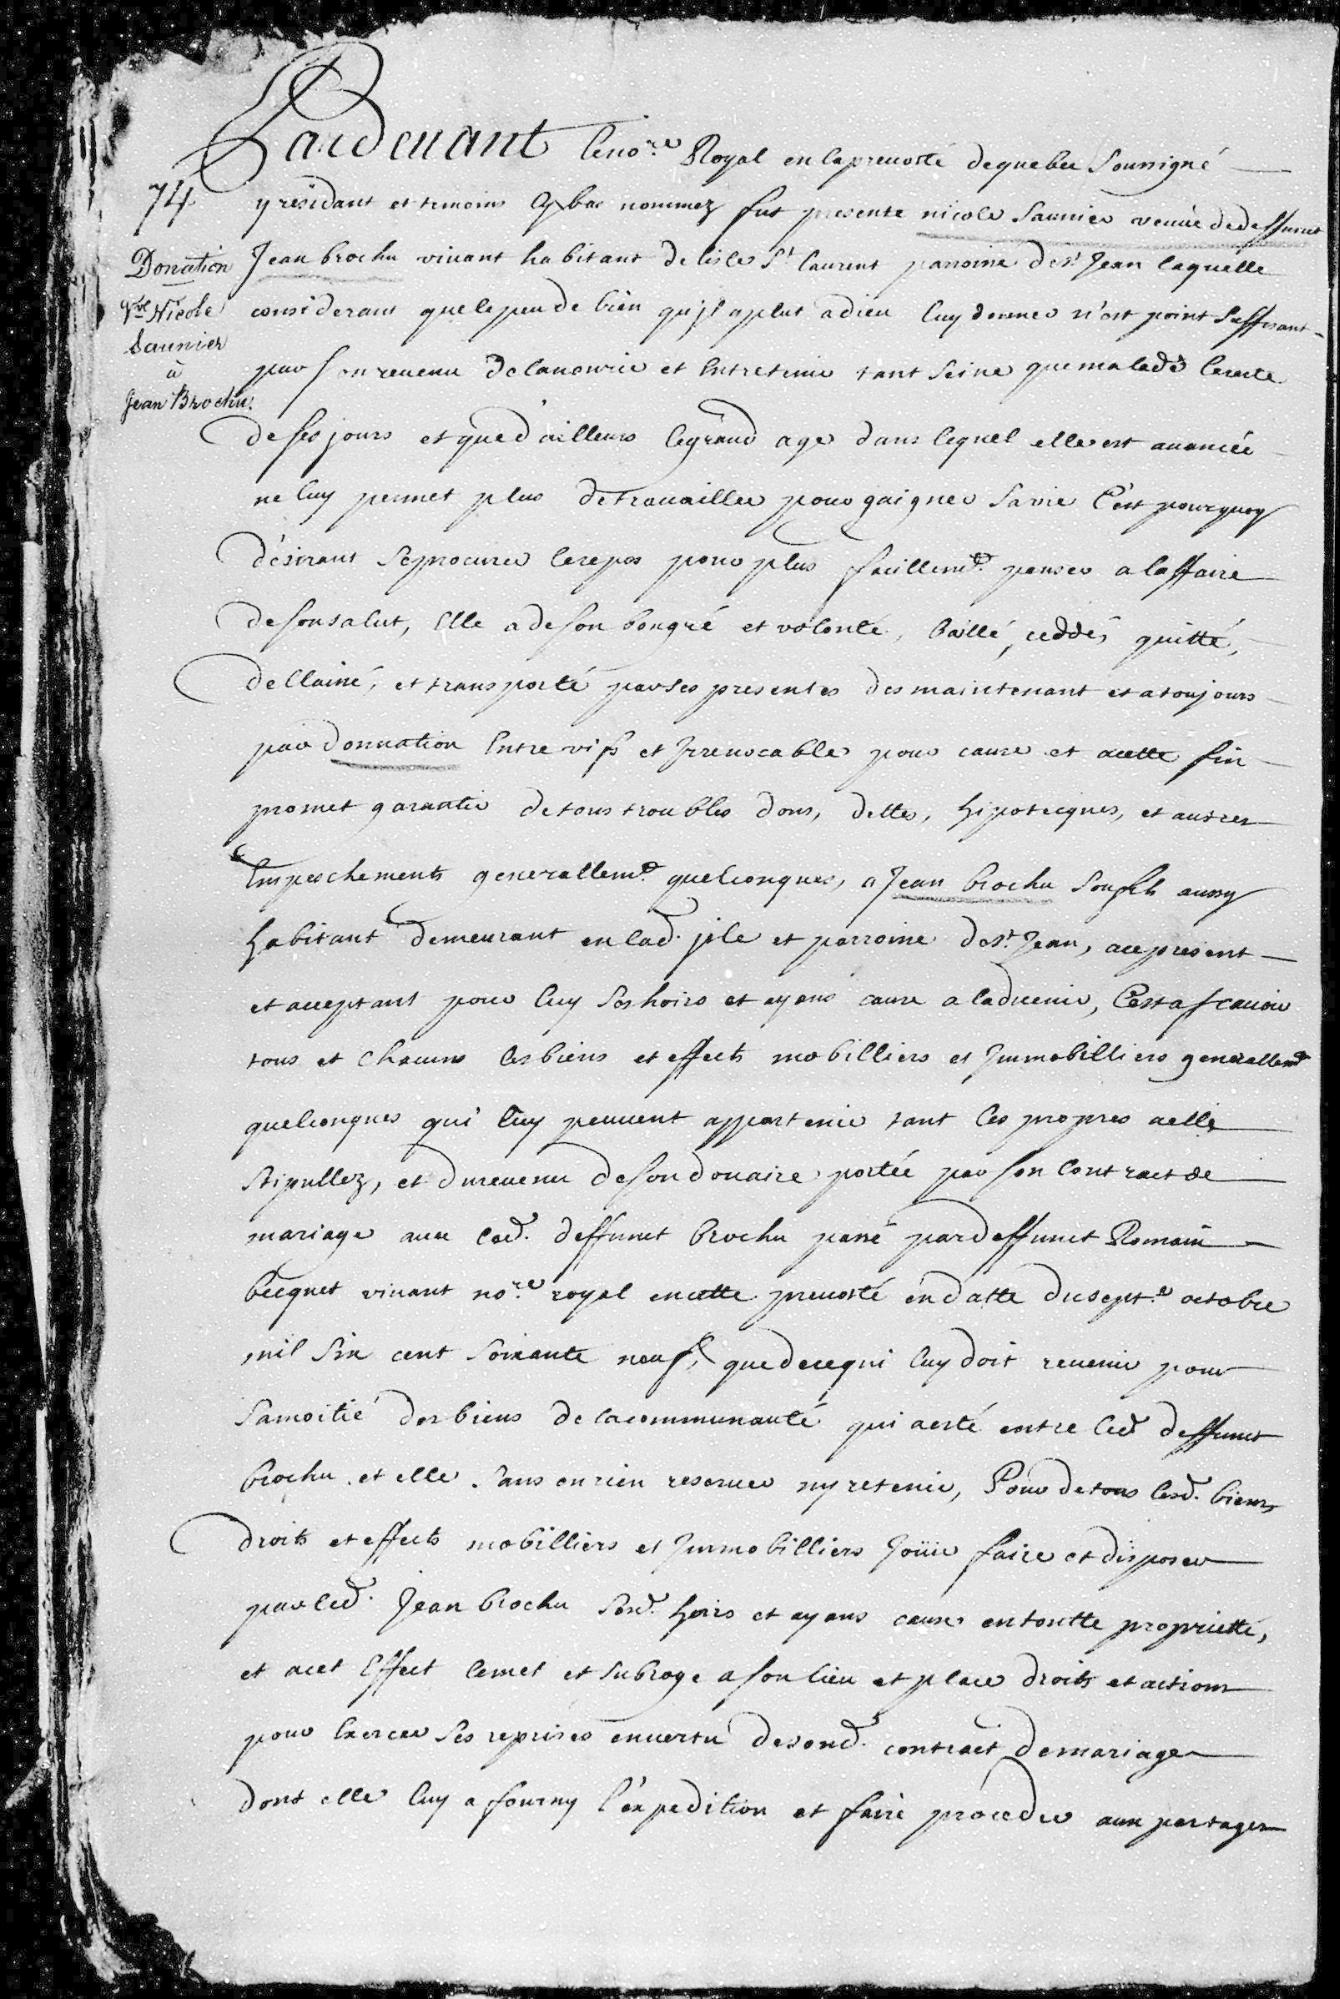 Pardevant le no.re Royal en la prevosté de quebec soussigné
74
y residant et temoins Cy bas nommez fut presente nicole saunier veuve de deffunct
Donation
Jean brochu vivant habitant de lisle St laurent parroisse de St Jean laquelle
Vve Nicole
considerant que le peu de bien qu'jl a plut a dieu luy donner n'est point suffisant
Saunier
à
par son revenu de la nourir et Entretenir tant seine que malade le reste
Jean Brochu.
de ses jours et que d'ailleurs le grand age dans lequel elle est avancée
ne luy permet plus de travailler pour gaigner sa vie C'est pourquoy
désirant se procurer le repos pour plus facillemt. penser a laffaire
de son salut, Elle a de son bon gré et volonté, baillé, ceddés quitté,
dellaissé, et transporté par ses presentes des maintenant et a toujours
par donnation Entre vifs et Jrrevocable pour cause et a cette fin
promet garantir de tous troubles dons, dettes, hipotecques, et autres
Empeschements generallemt. quelconques, a Jean brochu son fils aussy
habitant demeurant en lad. jsle et parroisse de St. Jean, a ce present
et acceptant pour luy ses hoirs et ayans cause a ladvenir, C'est a scavoir
tous et chacuns les biens et effects mobilliers et Jmmobilliers generallemt
quelconques qui luy peuvent appartenir tant les propres a elle
stipullez, et du revenu de son douaire portée par son Contract de
mariage avec led. deffunct brochu passé par deffunct Romain
becquet vivant no.re royal en cette prevosté en datte du sept.e octobre
mil six cent soixante neuf, que de ce qui luy doit revenir pour
sa moitié des biens de la communauté qui a esté entre led deffunct
brochu et elle. sans en rien reserver ny retenir, Pour de tous lesd. biens
droits et effects mobilliers et Jmmobilliers Joüir faire et disposer
par led. Jean brochu sesd. hoirs et ayans cause en toutte propriette,
et a cet Effect le met et subroge a son lieu et place droits et actions
pour Exercer ses reprises en vertu de sond. contract de mariage
dont elle luy a fourny l'expedition et faire proceder aux partages